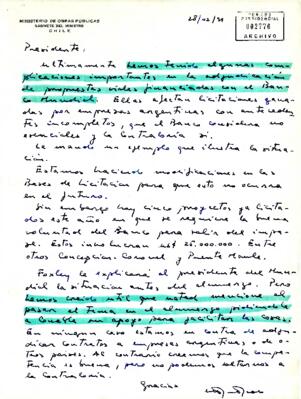 MINISTERIO DE OBRAS PUBLICAS
GABINETE DEL MINISTRO
CHILE
28/02/91
PERIODO
PRESIDENCIAL
002776
ARCHIVO
Presidente:
Ultimamente hemos tenido algunas com-
plicaciones importantes en la adjudicación
de propuestas viales financiadas con el Ban
co Mundial. Ellas afectan licitaciones gana-
das por empresas argentinas con anteceden
tes incompletos, que el Banco considera no
esenciales y la Contraloría si.
Le mando un ejemplo que ilustra la situa-
ción.
Estamos haciendo modificaciones en las
Bases de Licitación para que esto no ocurra
en el futuro.
Sin embargo hay cinco proyectos ya licita-
dos este año en que se requiere la buena
voluntad del Banco para salir del impa-
se. Estos involucran US$ 25.000.000. Entre
otros Concepción-Coronel y Puente Maule.
Foxley le explicará al presidente del Mun-
dial la situación antes del almuerzo. Pero
hemos creído útil que usted mencione al
pasar el tema en el almuerzo pidiéndole
a Conable su apoyo para facilitar las cosas.
En ningún caso estamos en contra de adju-
dicar contratos a empresas argentinas o de
otros países. Al contrario creemos que la compe-
tencia es buena, pero no podemos saltarnos a
la Contraloría.
Gracias